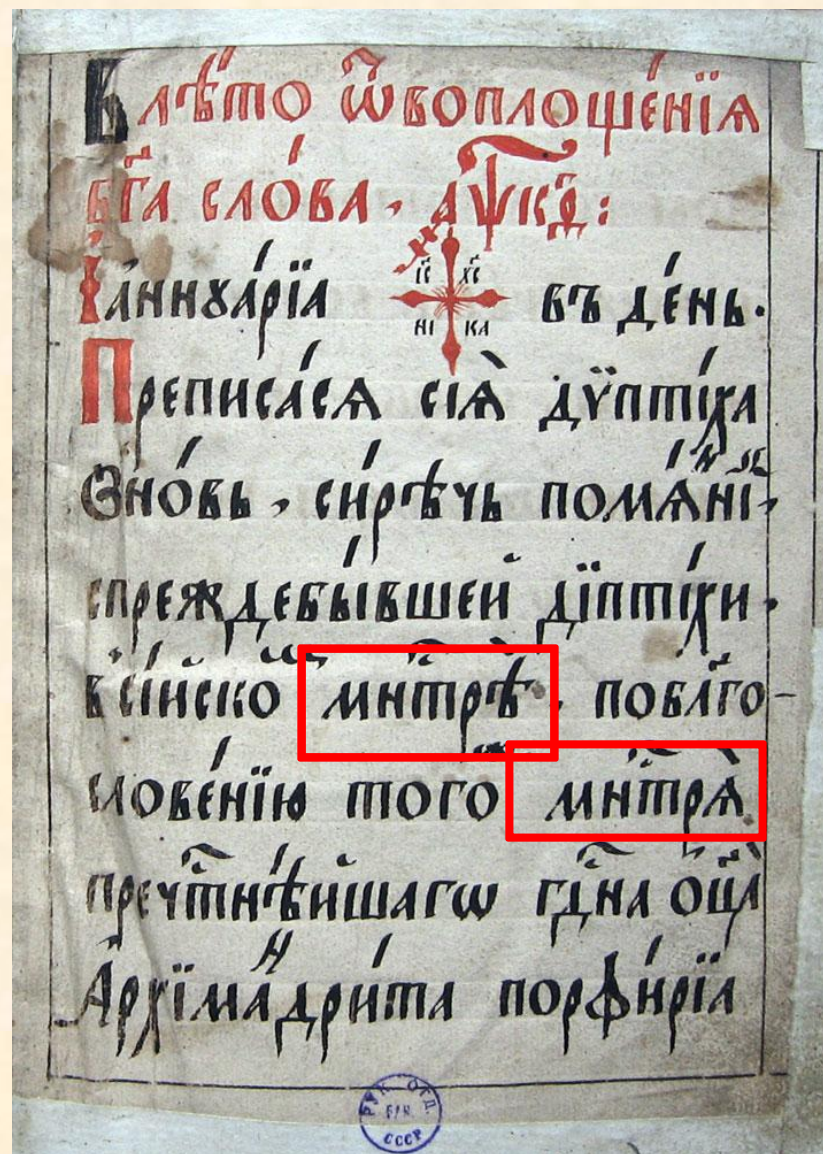 В лѣто ѿ воплощенїѧ
бг҃а сло́ва · а҂ѱк҃д :
Іаннꙋа́рїа іс҃ хс҃ ні ка въ де́нь.
Преписа́сѧ сїѧ̀ дѵ̈птиха
Ѕно́вь , си́рѣчь помѧ́ни
спрежде бы́вшей дїпти́хи ·
в си́йско мн҃трѣ̀ , по блг҃о-
слове́нїю того мн҃трѧ̀
преч҃тнѣ́йшагѡ гд҃на оц҃а̀
Архїма́ндри́та порфи́рїа
РУК. ОТД.
БАН
СССР